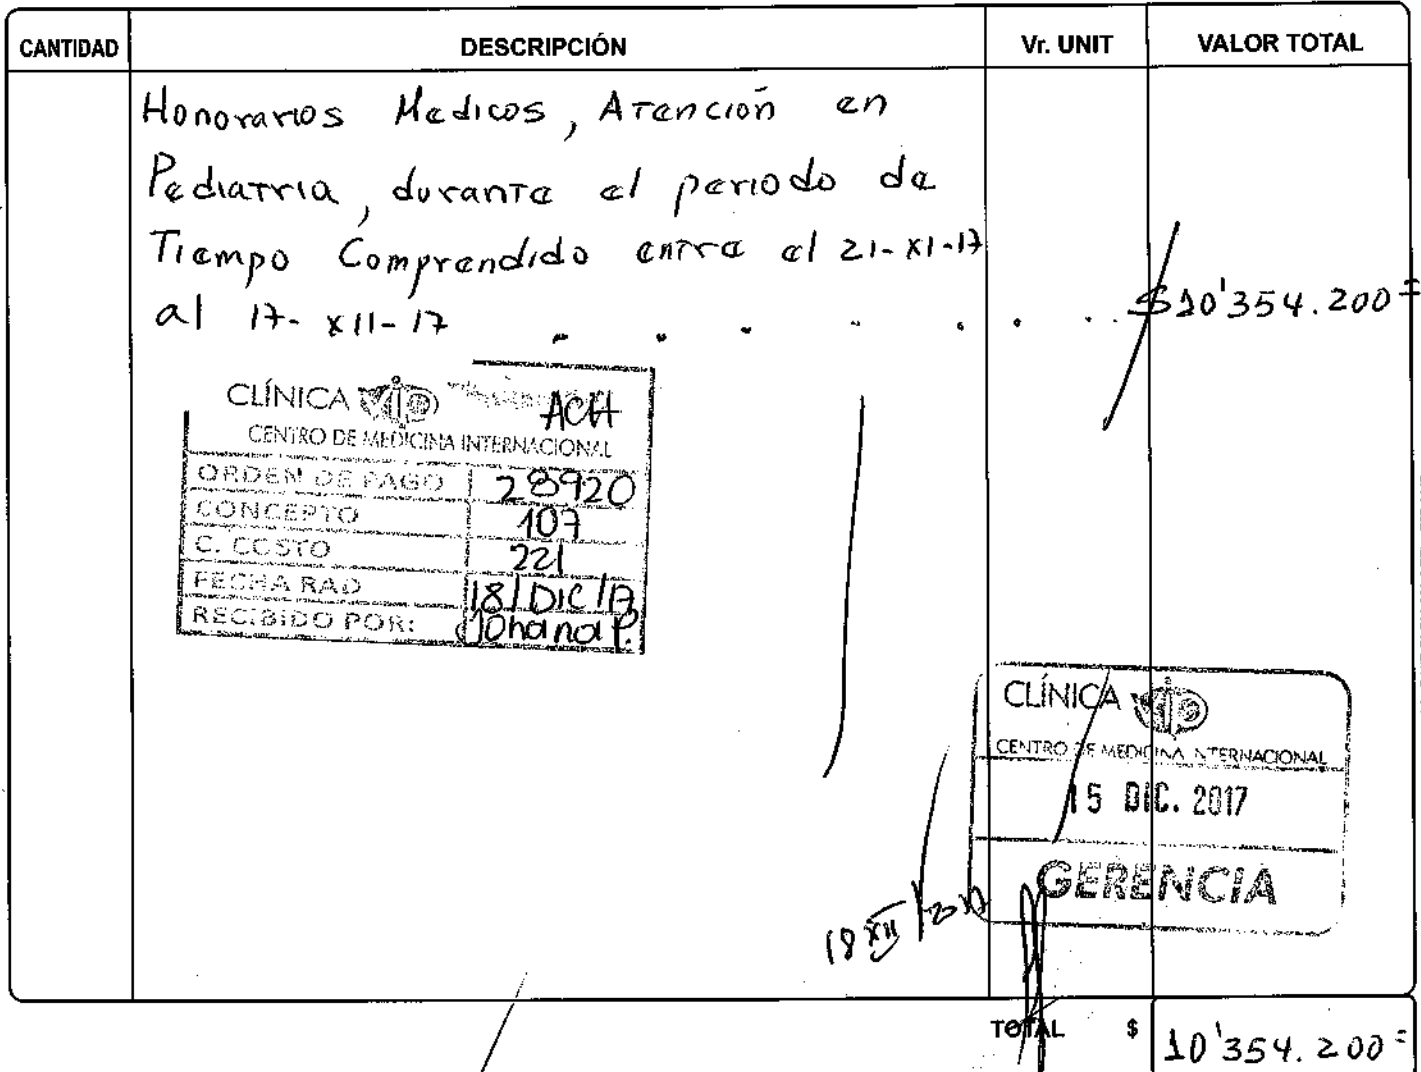 CANTIDAD DESCRIPCIÓN Vr. UNIT VALOR TOTAL
Honorarios Medicos, Atención en
Pediatria, durante el periodo de
Tiempo Comprendido entre el 21-XI-17
al 17-XII-17 . . . . . . . $10'354.200=
CLÍNICA vip ACH
CENTRO DE MEDICINA INTERNACIONAL
ORDEN DE PAGO 28920
CONCEPTO 107
C. COSTO 221
FECHA RAD 18/DIC/17
RECIBIDO POR: Johana P.
CLÍNICA vip
CENTRO DE MEDICINA INTERNACIONAL
15 DIC. 2017
GERENCIA
18 XII/2017
TOTAL $ 10'354.200=